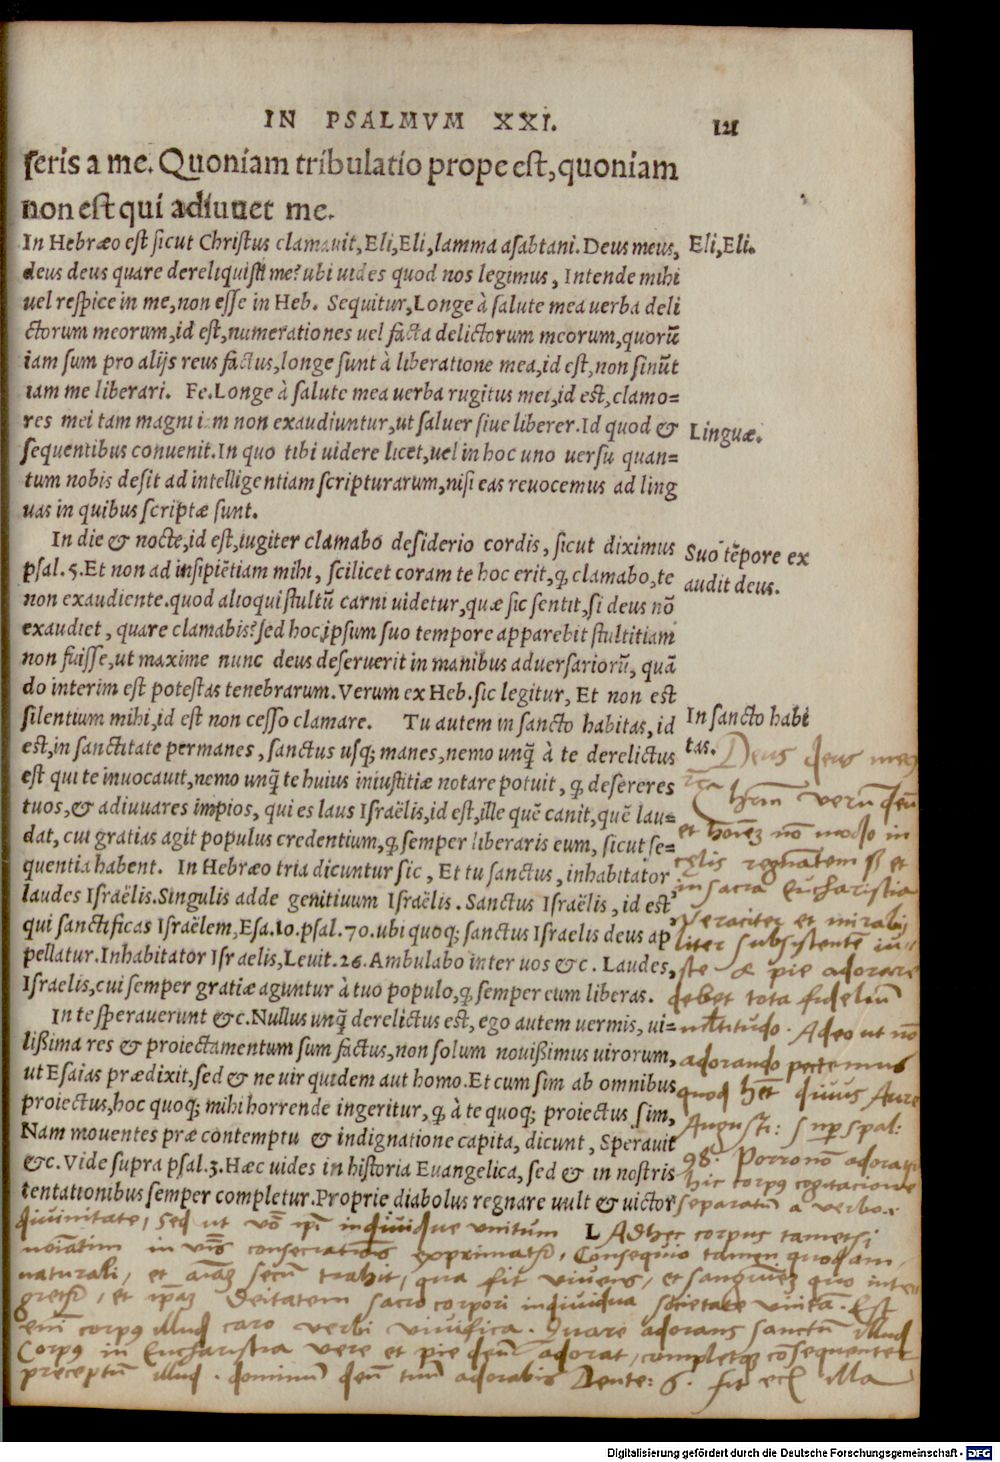 IN PSALMVM XXI. 121
seris a me. Quoniam tribulatio prope est, quoniam
non est qui adiuuet me.
In Hebræo est sicut Christus clamauit, Eli, Eli, lamma asabtani. Deus meus,
Eli, Eli.
deus deus quare dereliquisti me? ubi uides quod nos legimus, Intende mihi
uel respice in me, non esse in Heb. Sequitur, Longe à salute mea uerba deli
ctorum meorum, id est, numerationes uel facta delictorum meorum, quorũ
iam sum pro alijs reus factus, longe sunt à liberatione mea, id est, non sinũt
iam me liberari. Fe. Longe à salute mea uerba rugitus mei, id est, clamo=
res mei tam magni iam non exaudiuntur, ut saluer siue liberer. Id quod &
Linguæ.
sequentibus conuenit. In quo tibi uidere licet, uel in hoc uno uersu quan=
tum nobis desit ad intelligentiam scripturarum, nisi eas reuocemus ad ling
uas in quibus scriptæ sunt.
In die & nocte, id est, iugiter clamabo desiderio cordis, sicut diximus
Suo tẽpore ex
psal. 5. Et non ad insipiẽtiam mihi, scilicet coram te hoc erit, ꝙ clamabo, te
audit deus.
non exaudiente. quod alioqui stultũ carni uidetur, quæ sic sentit, si deus nõ
exaudiet, quare clamabis? sed hoc ipsum suo tempore apparebit stultitiam
non fuisse, ut maxime nunc deus deseruerit in manibus aduersariorũ, quã
do interim est potestas tenebrarum. Verum ex Heb. sic legitur, Et non est
silentium mihi, id est non cesso clamare. Tu autem in sancto habitas, id
In sancto habi
tas.
est, in sanctitate permanes, sanctus usq; manes, nemo unq̃ à te derelictus
est qui te inuocauit, nemo unq̃ te huius iniustitiæ notare potuit, ꝙ desereres
tuos, & adiuuares impios, qui es laus Israëlis, id est, ille quẽ canit, quẽ lau=
dat, cui gratias agit populus credentium, ꝙ semper liberaris eum, sicut se=
quentia habent. In Hebræo tria dicuntur sic, Et tu sanctus, inhabitator
laudes Israëlis. Singulis adde genitiuum Israëlis. Sanctus Israëlis, id est
qui sanctificas Israëlem, Esa. 10. psal. 70. ubi quoq; sanctus Israelis deus ap
pellatur. Inhabitator Israelis, Leuit. 26. Ambulabo inter uos &c. Laudes
Israelis, cui semper gratiæ aguntur à tuo populo, ꝙ semper eum liberas.
In te sperauerunt &c. Nullus unq̃ derelictus est, ego autem uermis, ui=
lißima res & proiectamentum sum factus, non solum nouißimus uirorum,
ut Esaias prædixit, sed & ne uir quidem aut homo. Et cum sim ab omnibus
proiectus, hoc quoq; mihi horrende ingeritur, ꝙ à te quoq; proiectus sim,
Nam mouentes præ contemptu & indignatione capita, dicunt, Sperauit
&c. Vide supra psal. 3. Hæc uides in historia Euangelica, sed & in nostris
tentationibus semper completur. Proprie diabolus regnare uult & uictor
Deus deus meus
verũ deũ
et non modo in
cęlis regnãtem et
in sacra Eucharistia
veraciter et mirabi
liter subsistentẽ iu-
ste & pie adorare
debet tota fideliũ
multitudo. Adeo ut nõ
adorando peccemus
quod diuus Aure
Augusti: super psal:
98. Porro nõ adoratur
hic corpus cogitatione
separatũ a verbo
diuinitate, sed ut indiuidue unitum Ad hęc corpus tametsi
in consecrationis exprimatur, Consequẽter tamen quodam
naturali, et secũ trahit, qua fit viuens, et sanguinẽ quo inte-
gretur, et Deitatem sacro corpori indiuidua societate vnitã. Est
enĩ corpus illud caro verbi viuifica. Quare adorans sanctũ illud
Corpus in Eucharistia vere et pie deũ adorat, completque cõsequenter
preceptũ illud. dominũ deũ tuũ adorabis Deute: 6. fit illa
Digitalisierung gefördert durch die Deutsche Forschungsgemeinschaft - DFG